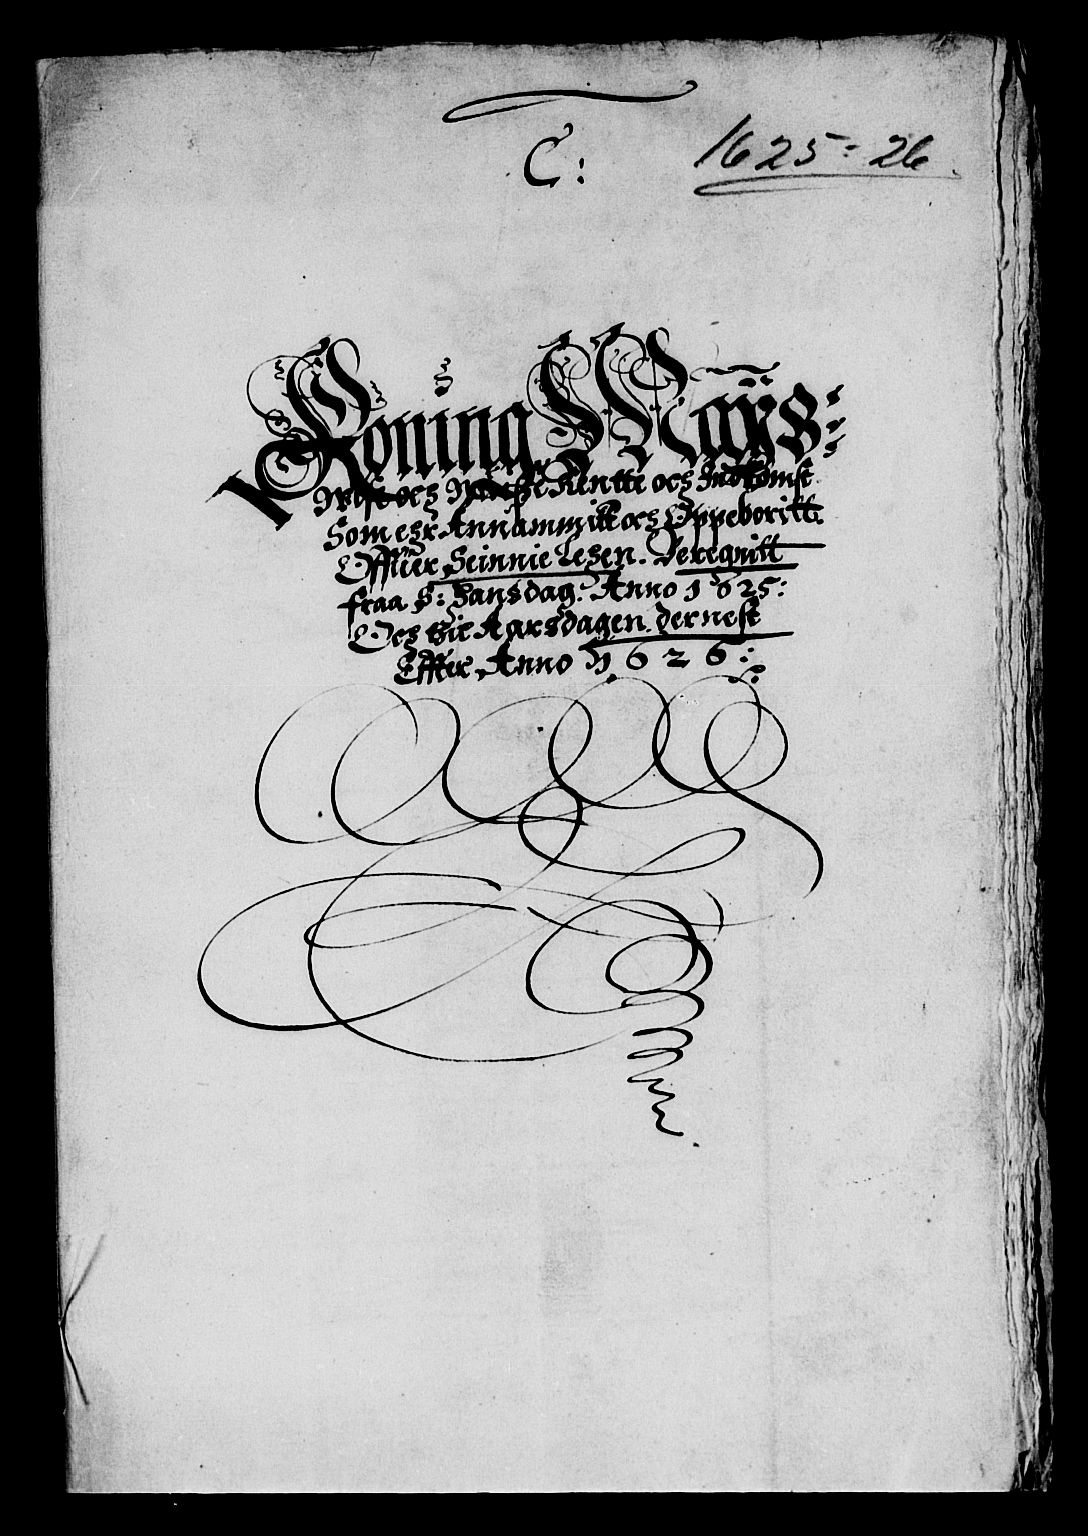 C:
1625:26
Koning Mayts:
Wist och Wisse Rentte och Indkomst
Som ehr Annammitt och Oppeboritt
Offuer Seinnie Lehen. Beregnitt
fraa S: Hansdag: Anno 1625:
Och thil Aarsdagen dernest
Effter Anno 1626: